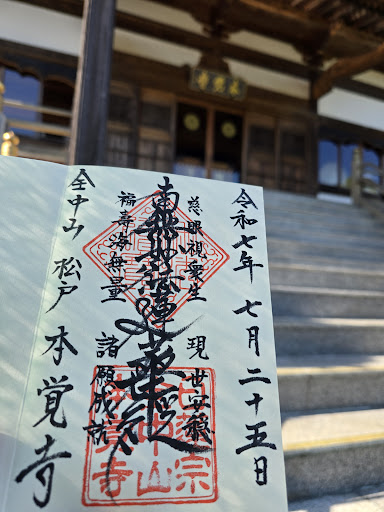 令和七年 七月二十五日
慈眼視衆生 現世安穏
南無妙法蓮華経
福寿海無量 諸願成就
全中山 松戸 本覚寺
日蓮宗
中山
本覚寺